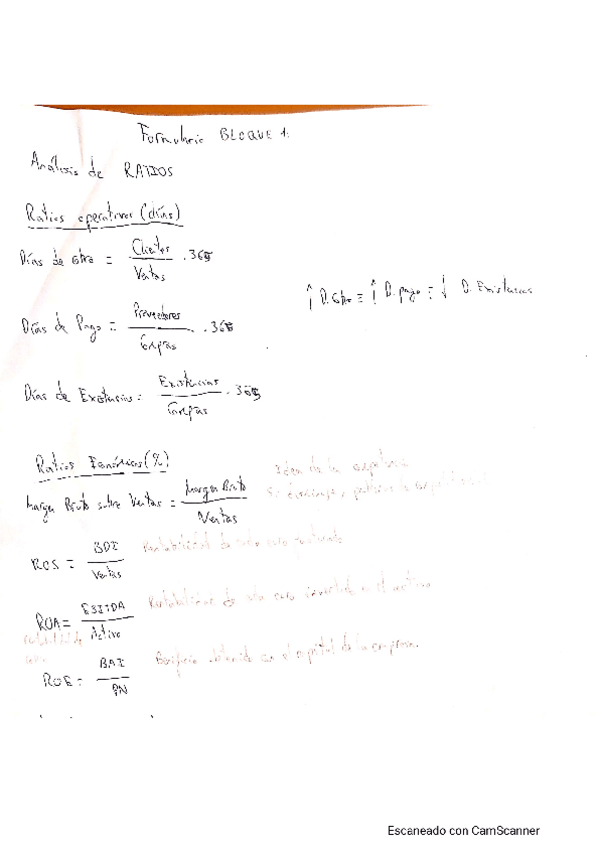 Formulario BLOQUE 1:
Análisis de RATIOS
Ratios operativos (días)
Días de cobro = Clientes / Ventas . 365
↑ D. Cobro = ↑ D. pago = ↓ D. Existencias
Días de Pago = Proveedores / Compras . 365
Días de Existencias = Existencias / Compras . 365
Ratios Económicos (%)
Margen Bruto sobre Ventas = Margen Bruto / Ventas
Idea de la
Si disminuye
ROS = BDI / Ventas Rentabilidad de cada euro
ROA = EBITDA / Activo Rentabilidad de cada euro invertido en el activo
ROE = BAI / PN Beneficio obtenido con el capital de la empresa.
Escaneado con CamScanner